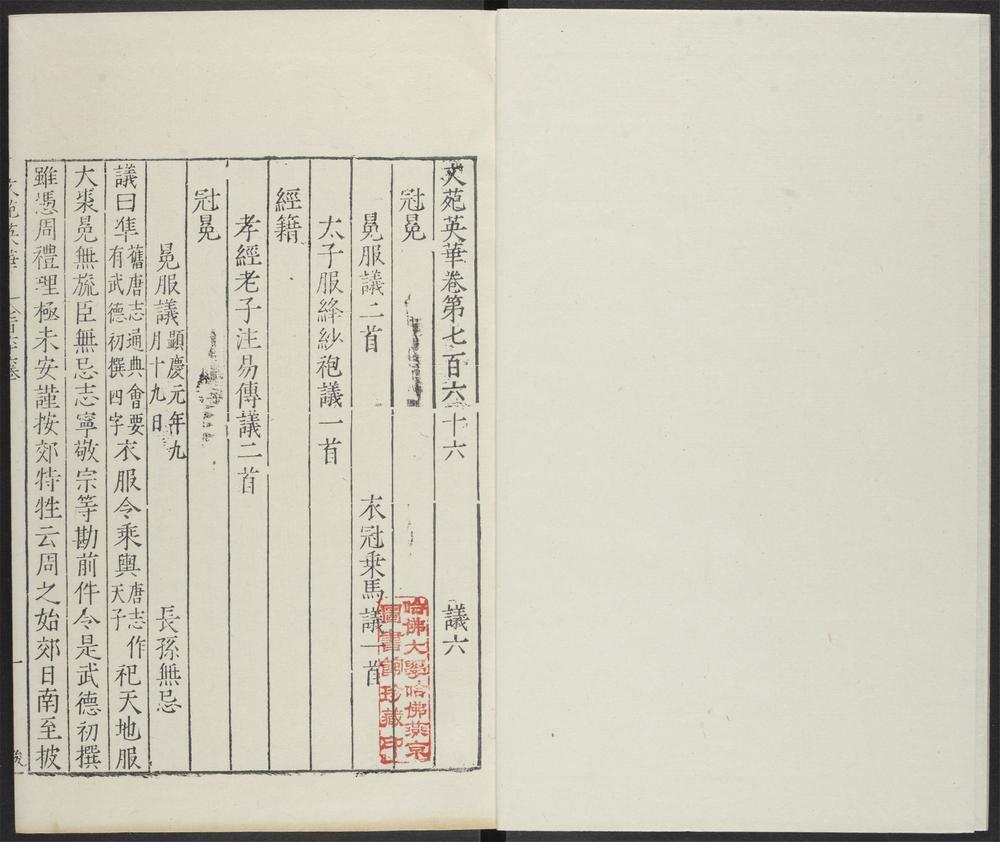 文苑英華卷第七百六十六 議六
冠冕
冕服議二首 衣冠乗馬議一首
太子服絳紗袍議一首
經籍
孝經老子注易傳議二首
冠冕
冕服議 顯慶元年九月十九日 長孫無忌
議曰準 舊唐志通典會要有武德初撰四字 衣服令乘輿 唐志作天子 祀天地服
大裘冕無旒臣無忌志寧敬宗等勘前件令是武德初撰
雖憑周禮理極未安謹按郊特牲云周之始郊日南至披
一
哈佛大學哈佛燕京
圖書館珍藏印